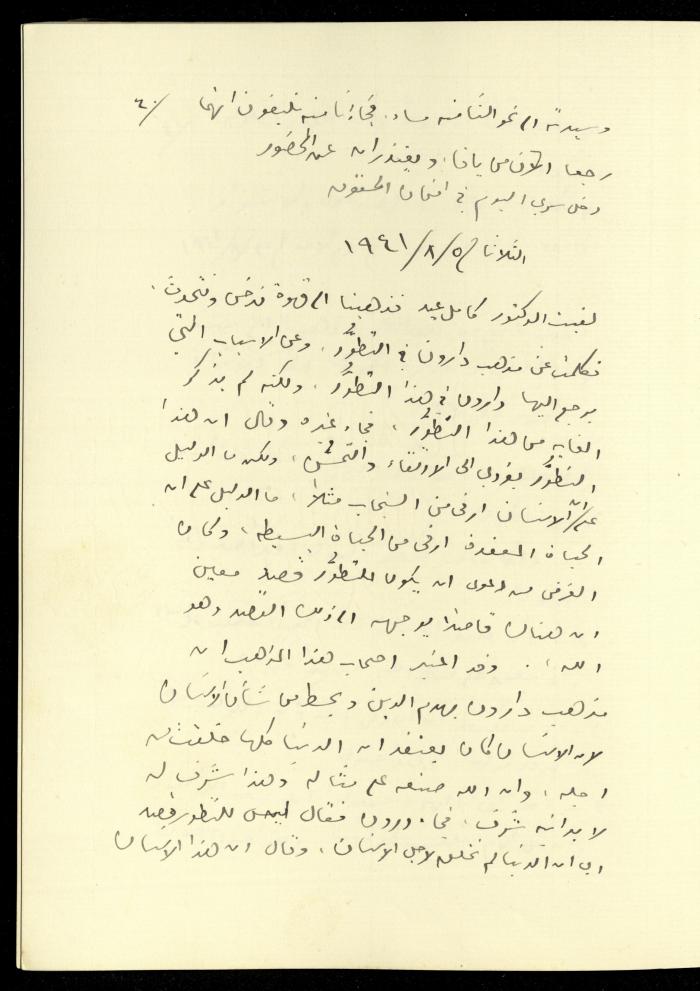 وسيدته الى نحو الثامنه مساء. فجاءنا منه تليفون انهما /٦٠
رجعا الآن من يافا، ويعتذران عن الحضور
دخل سري اليوم في امتحان الحقوق
الثلاثاء ٥/٨/١٩٤١
لقيت الدكتور كامل عيد فذهبنا الى قهوة ندخن ونتحدث.
تكلمت عن مذهب دارون في التطوُّر، وعن الاسباب التي
يرجع اليها دارون في هذا التطوُّر، ولكنه لم يذكر
الغايه من هذا التطوُّر، فجاء غيره وقال ان هذا
التطوُّر يؤدي الى الارتقاء والتحسُّن، ولكن ما الدليل
على ان الانسان ارقى من السنجاب مثلاً، ما الدليل على ان
الحياة المعقدة ارقى من الحياة البسيطه، وكان
الغرض من دعوى ان يكون للتطوُّر قصد معين
ان هناك قاصدًا يوجهه الى ذلك القصد وهو
الله. وقد اعتبر اصحاب هذا المذهب ان
مذهب دارون يهدم الدين ويحط من شأن الانسان
لان الانسان كان يعتقد ان الدنيا كلها خلقت من
اجله، وان الله صنعه على مثاله وهذا شرف له
لا يدانيه شرف، فجاء دورون فقال ليس للتطور قصد
اي ان الدنيا لم تخلق لاجل الانسان، وقال ان هذا الانسان